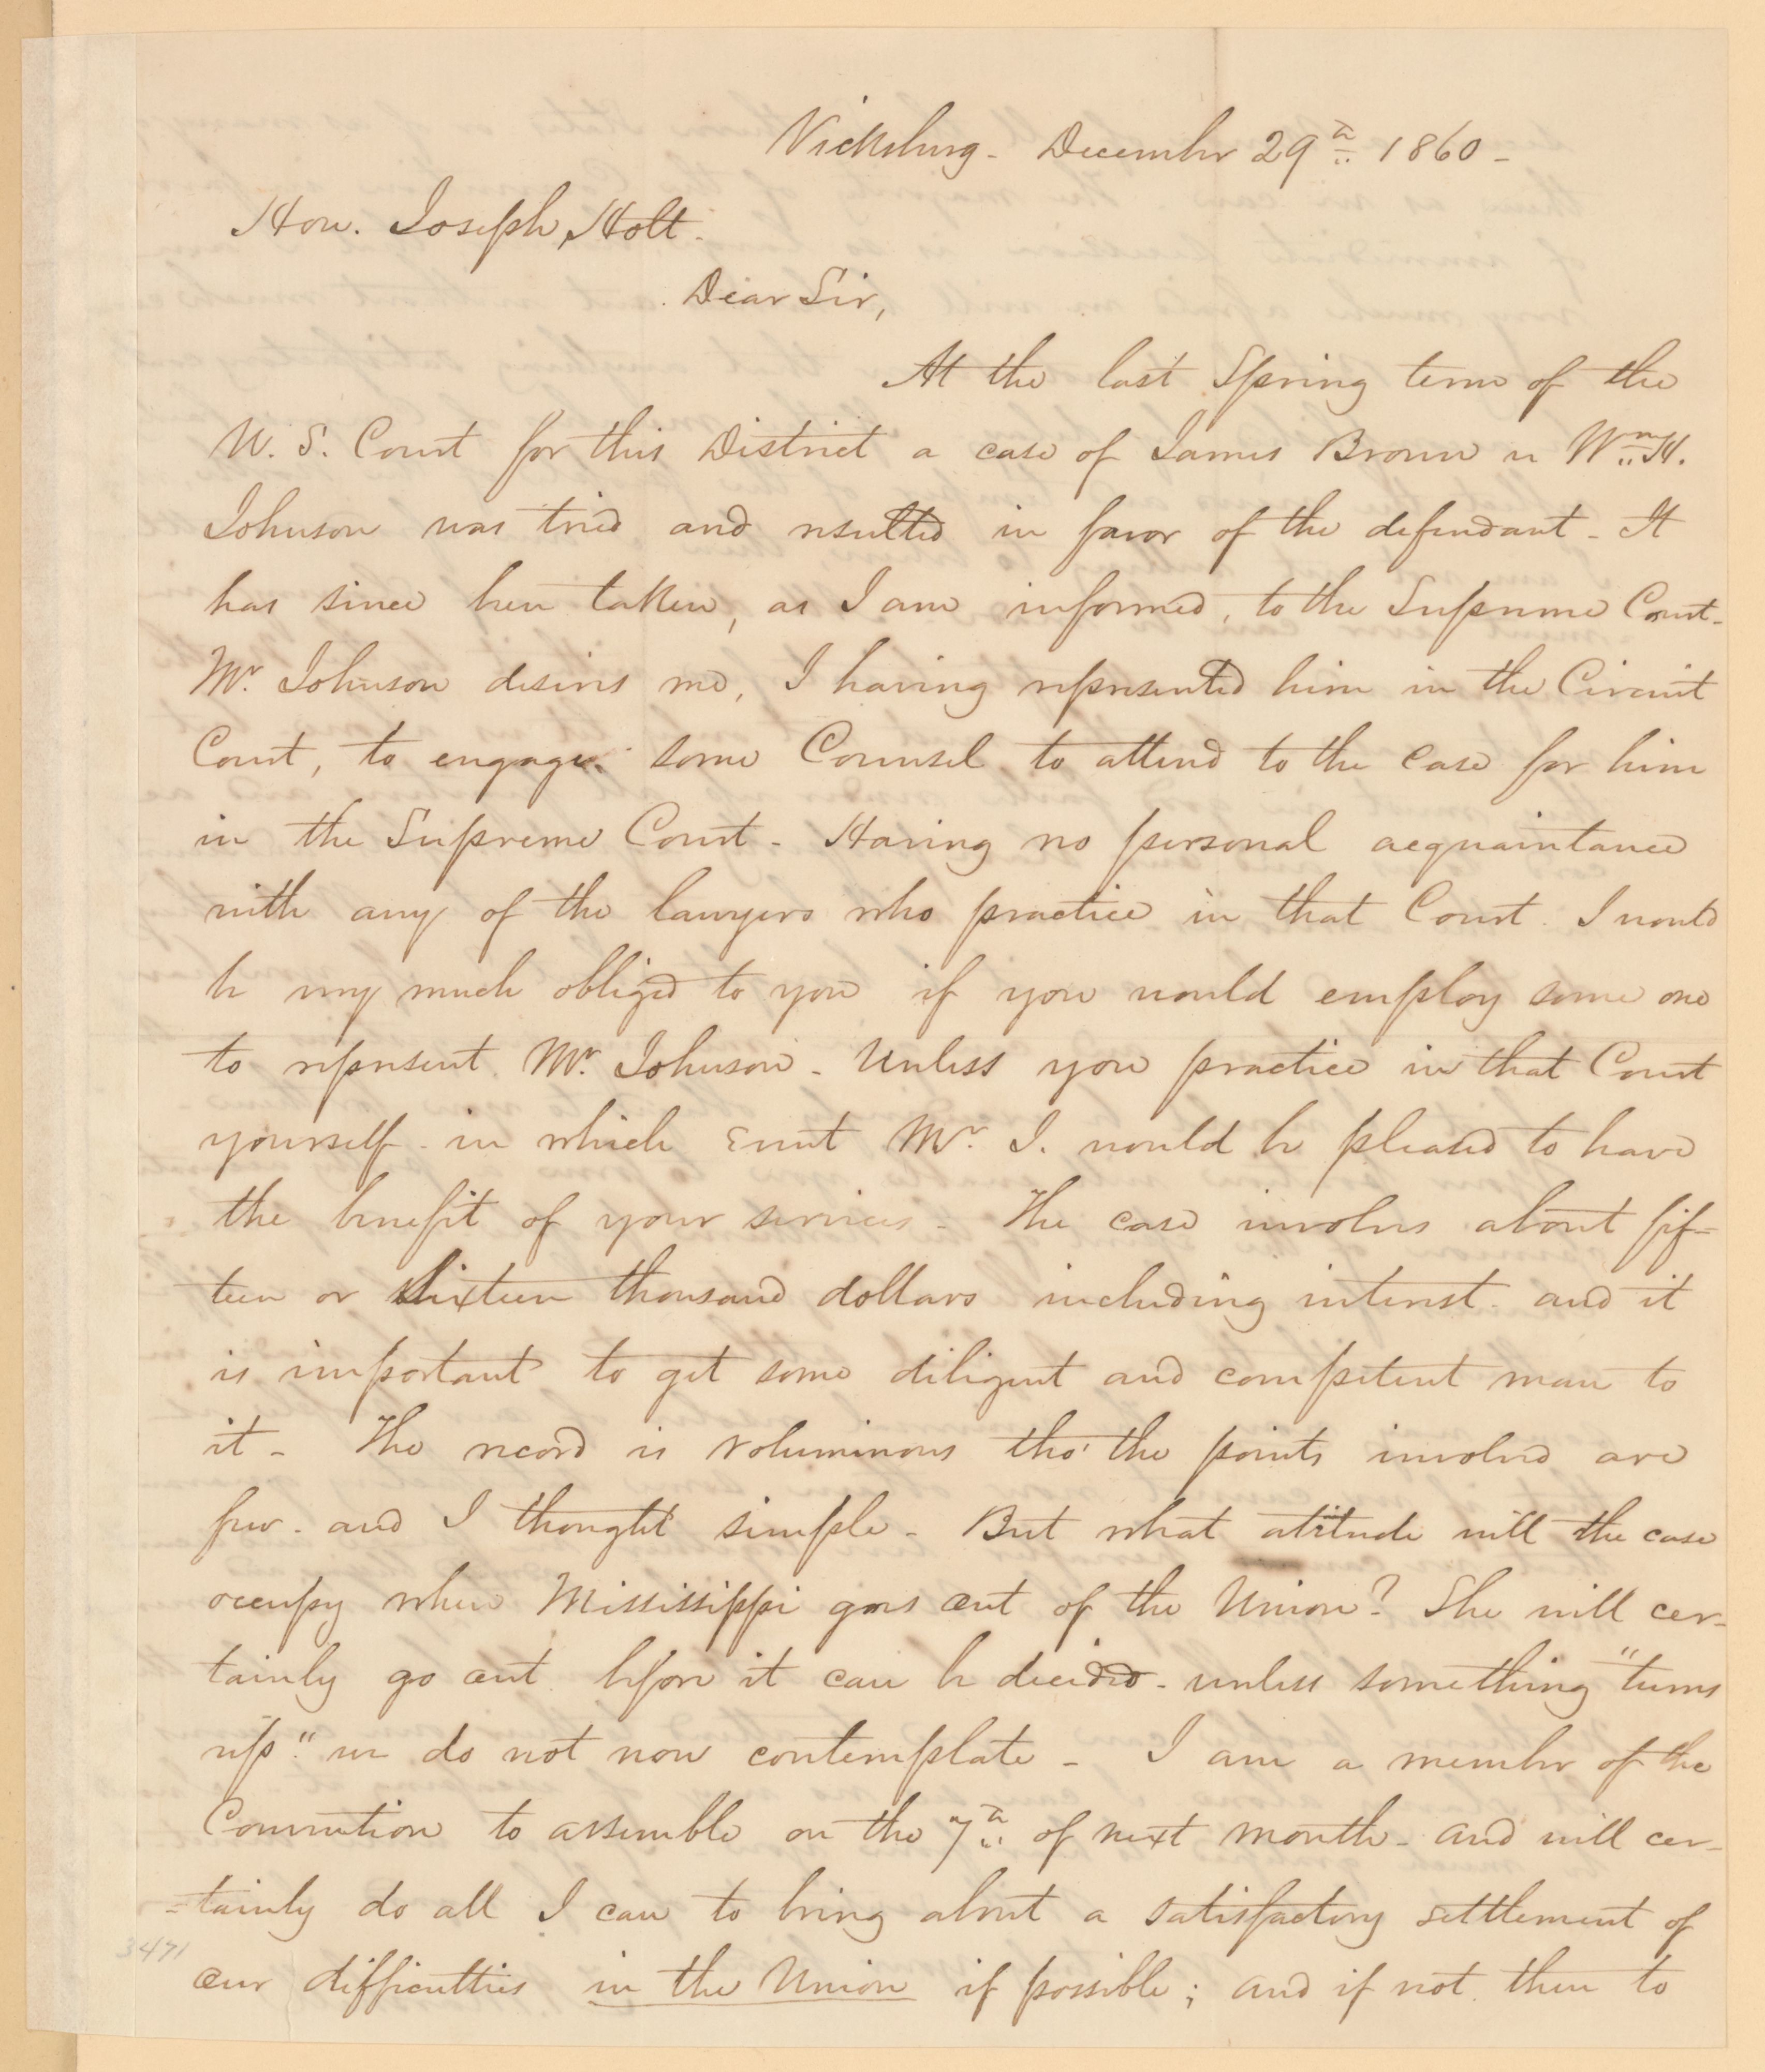 Vicksburg - December 29th 1860 -
Hon. Joseph Holt.
Dear Sir,
At the last Spring term of the
U. S. Court for this District a case of James Brown vs Wm H.
Johnson was tried and resulted in favor of the defendant - It
has since been taken, as I am informed, to the Supreme Court -
Mr. Johnson desires me, I having represented him in the Circuit
Court, to engage some Counsel to attend to the case for him
in the Supreme Court - Having no personal acquaintance
with any of the lawyers who practice in that Court. I would
be very much obliged to you if you would employ some one
to represent Mr. Johnson - Unless you practice in that Court
yourself - in which event Mr. J. would be pleased to have
the benefit of your services - The case involves about fif-
teen or sixteen thousand dollars including interest - and it
is important to get some diligent and competent man to
it - The record is voluminous tho' the points involved are
few - and I thought simple - But what atitude will the case
occupy when Mississippi goes out of the Union? She will cer-
tainly go out before it can be decided - unless something "turns
up" we do not now contemplate - I am a member of the
Convention to assemble on the 7th of next month - and will cer-
=tainly do all I can to bring about a satisfactory settlement of
our difficulties in the Union if possible; and if not then to
3471